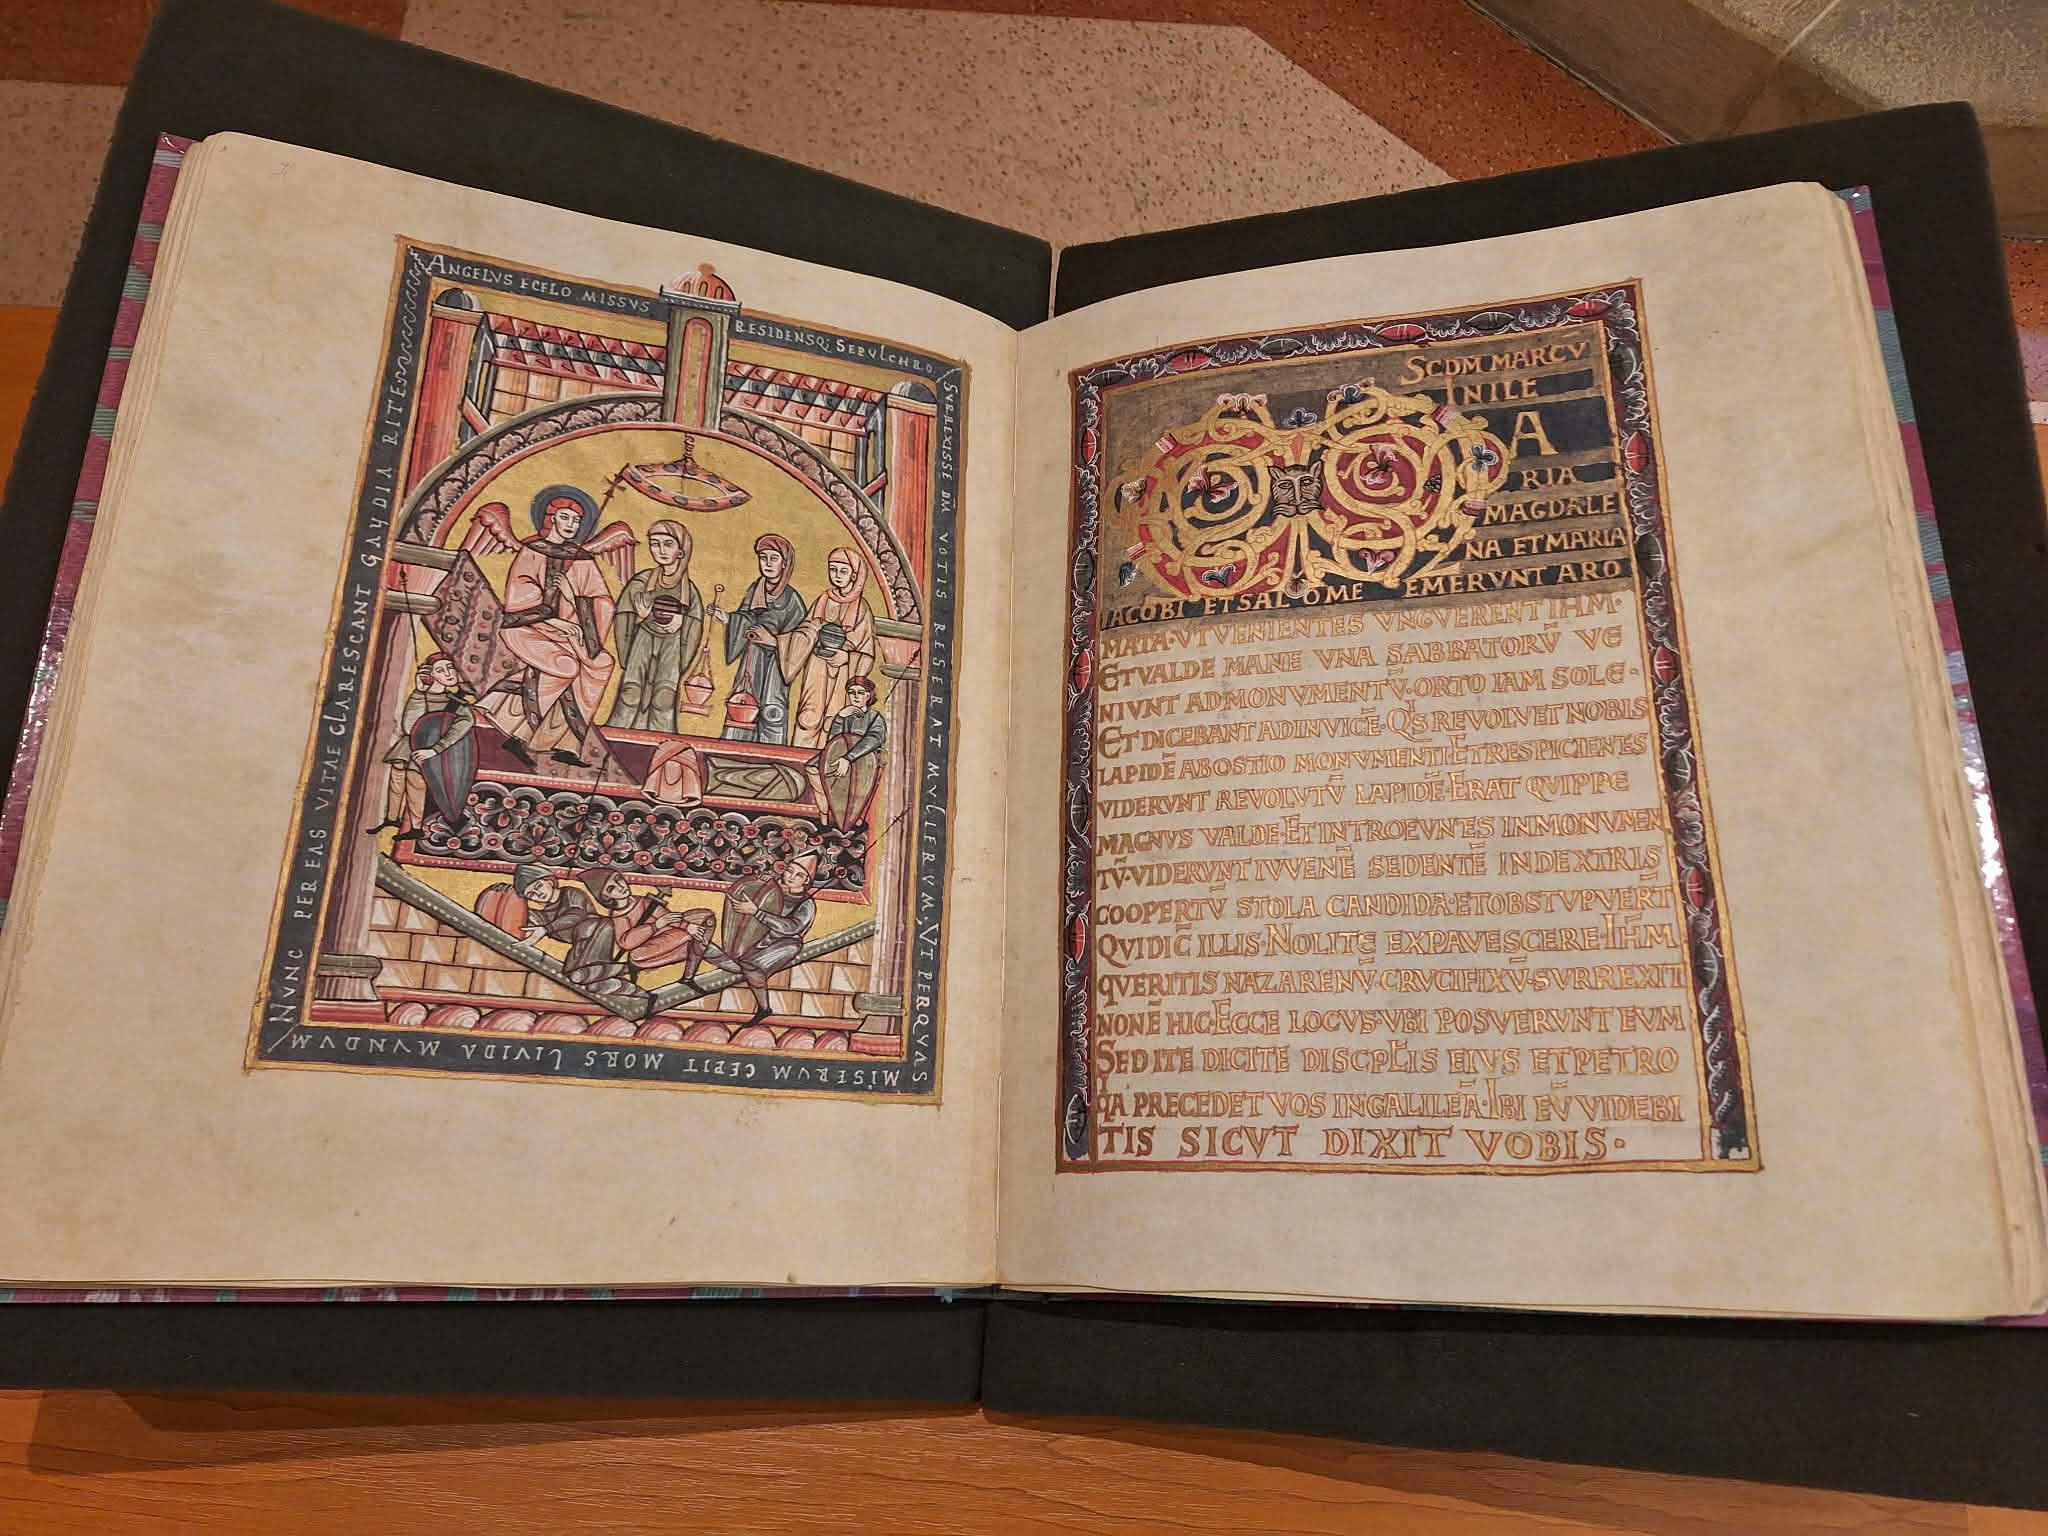 ANGELVS ECELO MISSVS
RESIDENSQ; SEPVLCHRO.
SVRREXISSE DM̄ VOTIS RESERAT MVLIERVM, VT PERQVAS
MISERVM CEPIT MORS LIVIDA MVNDVM
NVNC PER EAS VITAE CLARESCANT GAVDIA RITE
SCDM MARCV
INILE
A
RIA
MAGDALE
NA ET MARIA
IACOBI ET SALOME EMERVNT ARO
MATA·VT VENIENTES VNGVERENT IHM·
ET VALDE MANE VNA SABBATORV̄ VE
NIVNT AD MONVMENTV̄·ORTO IAM SOLE·
ET DICEBANT ADINVICĒ·QIS REVOLVET NOBIS
LAPIDĒ AB OSTIO MONVMENTI·ET RESPICIENTES
VIDERVNT REVOLVTV̄ LAPIDĒ·ERAT QVIPPE
MAGNVS VALDE·ET INTROEVNTES IN MONVMEN
TV̄·VIDERVNT IVVENĒ SEDENTĒ IN DEXTRIS
COOPERTV̄ STOLA CANDIDA·ET OBSTVPVERT̄
QVI DIC̄ ILLIS·NOLITE EXPAVESCERE·IH̄M
QVERITIS NAZARENV̄·CRVCIFIXV̄·SVRREXIT
NON Ē HIC·ECCE LOCVS·VBI POSVERVNT EVM
SED ITE DICITE DISCPLIS EIVS ET PETRO
QA PRECEDET VOS IN GALILEĀ·IBI EV̄ VIDEBI
TIS SICVT DIXIT VOBIS·